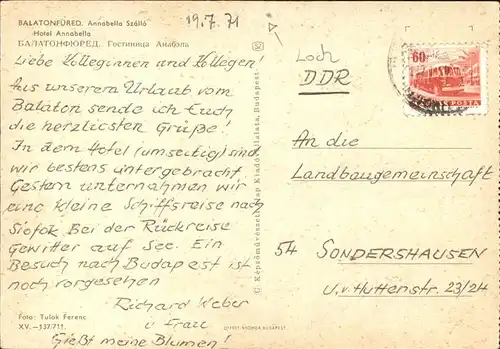 BALATONFÜRED. Annabella Szálló
Hotel Annabella
БАЛАТОНФЮРЕД. Гостиница Анабэла
19.7.71
Liebe Kolleginnen und Kollegen!
Aus unserem Urlaub vom
Balaton sende ich Euch
die herzlichsten Grüße!
In dem Hotel (umseitig) sind
wir bestens untergebracht
Gestern unternahmen wir
eine kleine Schiffsreise nach
Siofok Bei der Rückreise
Gewitter auf See. Ein
Besuch nach Budapest ist
noch vorgesehen
Richard Weber
u Frau
Gießt meine Blumen!
Foto: Tulok Ferenc
XV.-137/711.
OFFSET-NYOMDA BUDAPEST
Képzőművészeti Alap Kiadóvállalata, Budapest
Loch
DDR
60f
POSTA
An die
Landbaugemeinschaft
54 SONDERSHAUSEN
U.v. Huttenstr. 23/24